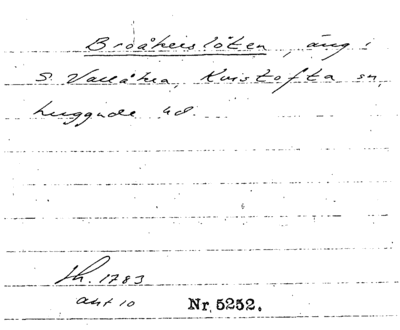 Broåkerslöten, äng i
S. Vallåkra, Kvistofta sn,
Luggude hd.
Lh. 1783
akt 10 Nr. 5252.